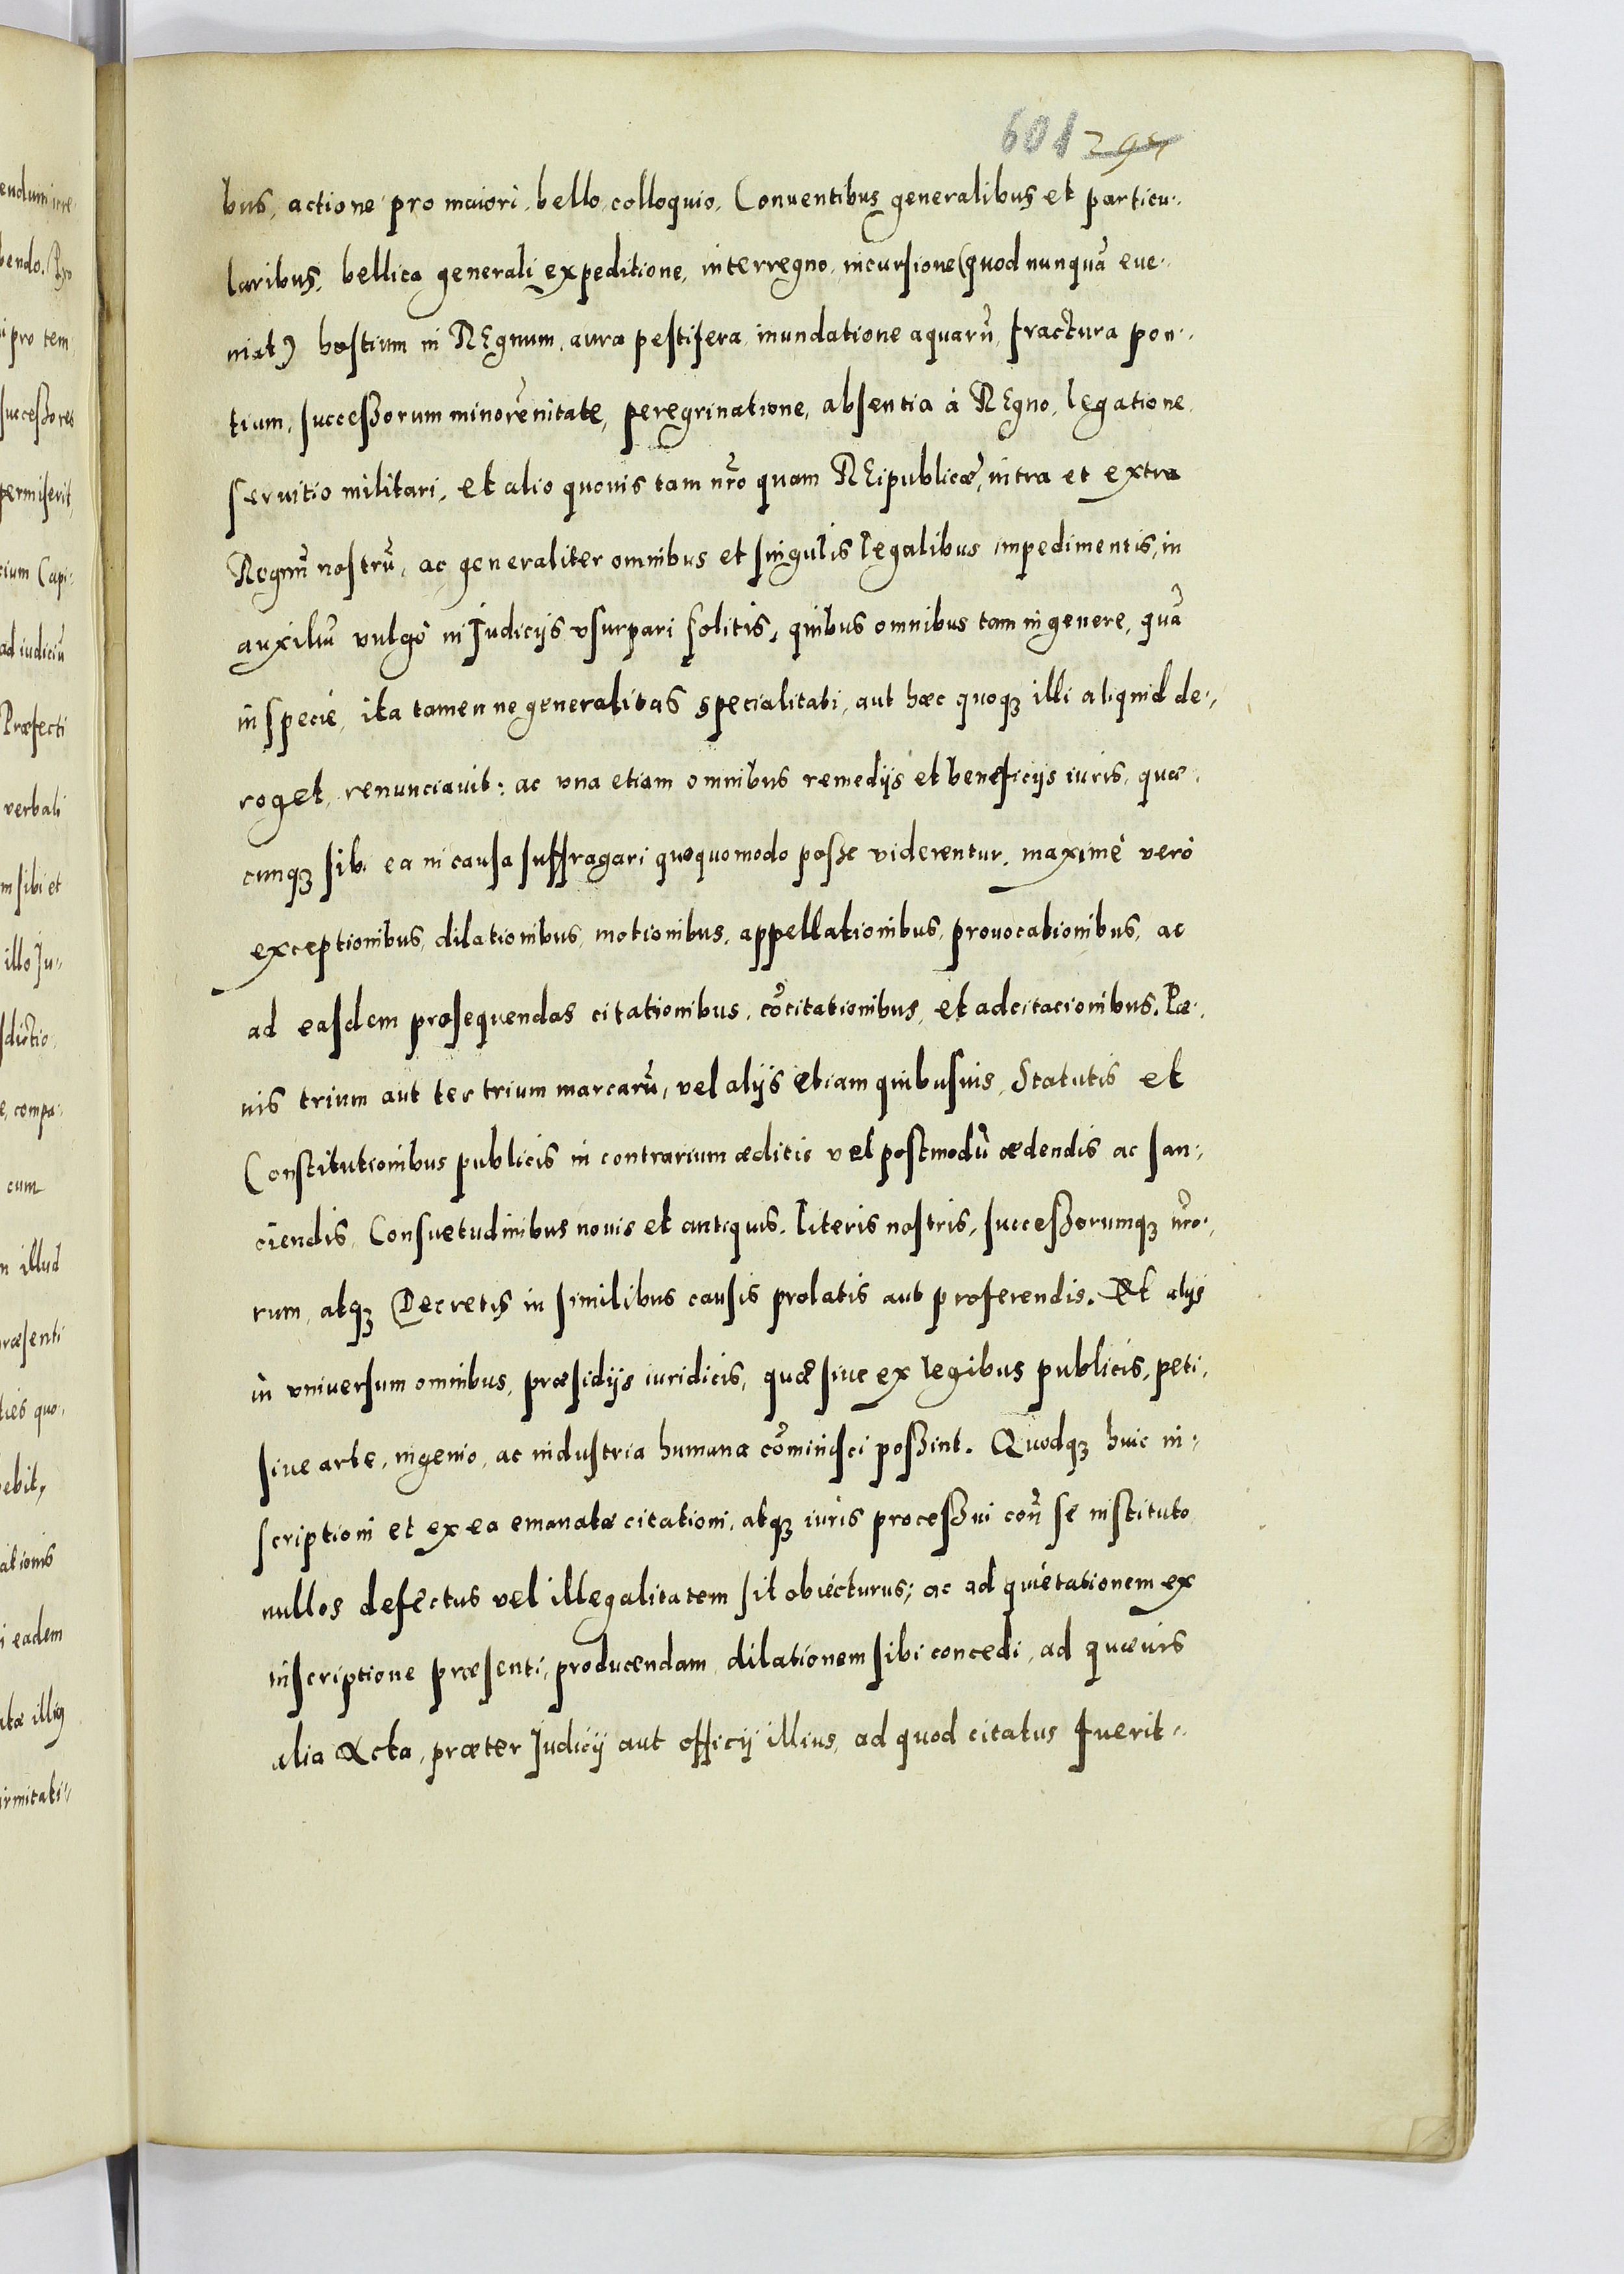 601 294
bus, actione pro maiori, bello, colloquio, Conuentibus generalibus et particu-
laribus, bellica generali expeditione, interregno, incursione (quod nunquã eue-
niat) hostium in REgnum, aura pestifera, inundatione aquarũ, fractura pon-
tium, successorum minorẽnitate, peregrinatione, absentia à REgno, legatione,
seruitio militari, et alio quouis tam nr̃o quam REipublicæ, intra et extra
Regnũ nostrũ, ac generaliter omnibus et singulis legalibus impedimentis, in
auxiliũ vulgò in Judicijs vsurpari solitis, quibus omnibus tam in genere, quã
in specie, ita tamen ne generalitas specialitati, aut hæc quoqꝫ illi aliquid de-
roget, renunciauit: ac vna etiam omnibus remedijs et beneficijs iuris, quæ-
cunqꝫ sibi ea in causa suffragari quoquomodo posse viderentur, maximè verò
exceptionibus, dilationibus, motionibus, appellationibus, prouocationibus, ac
ad easdem prosequendas citationibus, cõcitationibus, et adcitacionibus. Pæ-
nis trium aut ter trium marcarũ, vel alijs etiam quibusuis, Statutis et
Constitutionibus publicis in contrarium æditis vel postmodũ ædendis ac san-
ciendis, Consuetudinibus nouis et antiquis, literis nostris, successorumqꝫ nr̃o-
rum, atqꝫ Decretis in similibus causis prolatis aut proferendis. Et alijs
in vniuersum omnibus, præsidijs iuridicis, quæ siue ex legibus publicis, peti,
siue arte, ingenio, ac industria humana cõminisci possint. Quodqꝫ huic in-
scriptioni et ex ea emanatæ citationi, atqꝫ iuris processui coñ se instituto
nullos defectus vel illegalitatem sit obiecturus; ac ad quietationem ex
inscriptione præsenti, producendam, dilationem sibi concedi, ad quæuis
alia Acta, præter Judicij aut officij illius, ad quod citatus fuerit